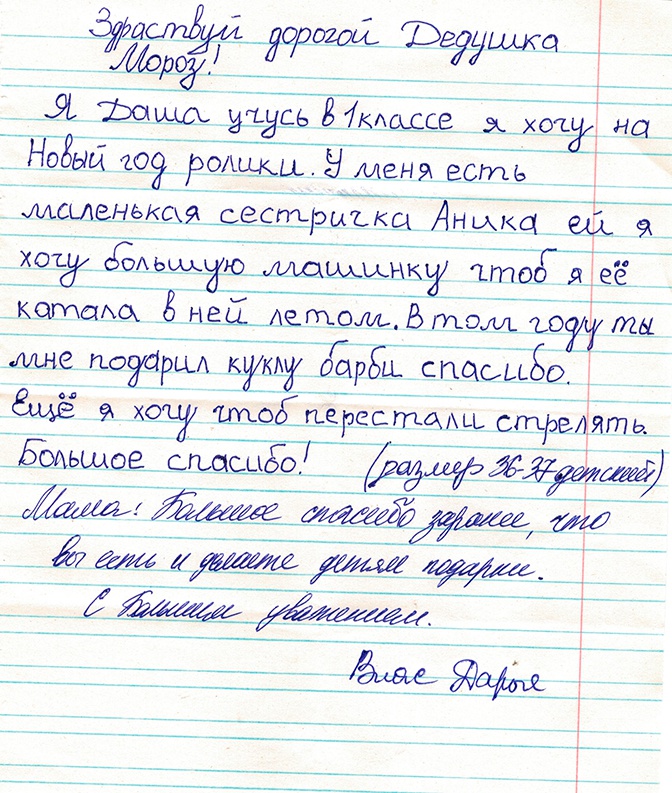 Здраствуй дорогой Дедушка
Мороз!
Я Даша учусь в 1классе я хочу на
Новый год ролики. У меня есть
маленькая сестричка Аника ей я
хочу большую машинку чтоб я её
катала в ней летом. В том году ты
мне подарил куклу барби спасибо.
Ещё я хочу чтоб перестали стрелять.
Большое спасибо! (размер 36-37 детский)
Мама: Большое спасибо заранее, что
вы есть и делаете детям подарки.
С Большим уважением.
Влас Дарья